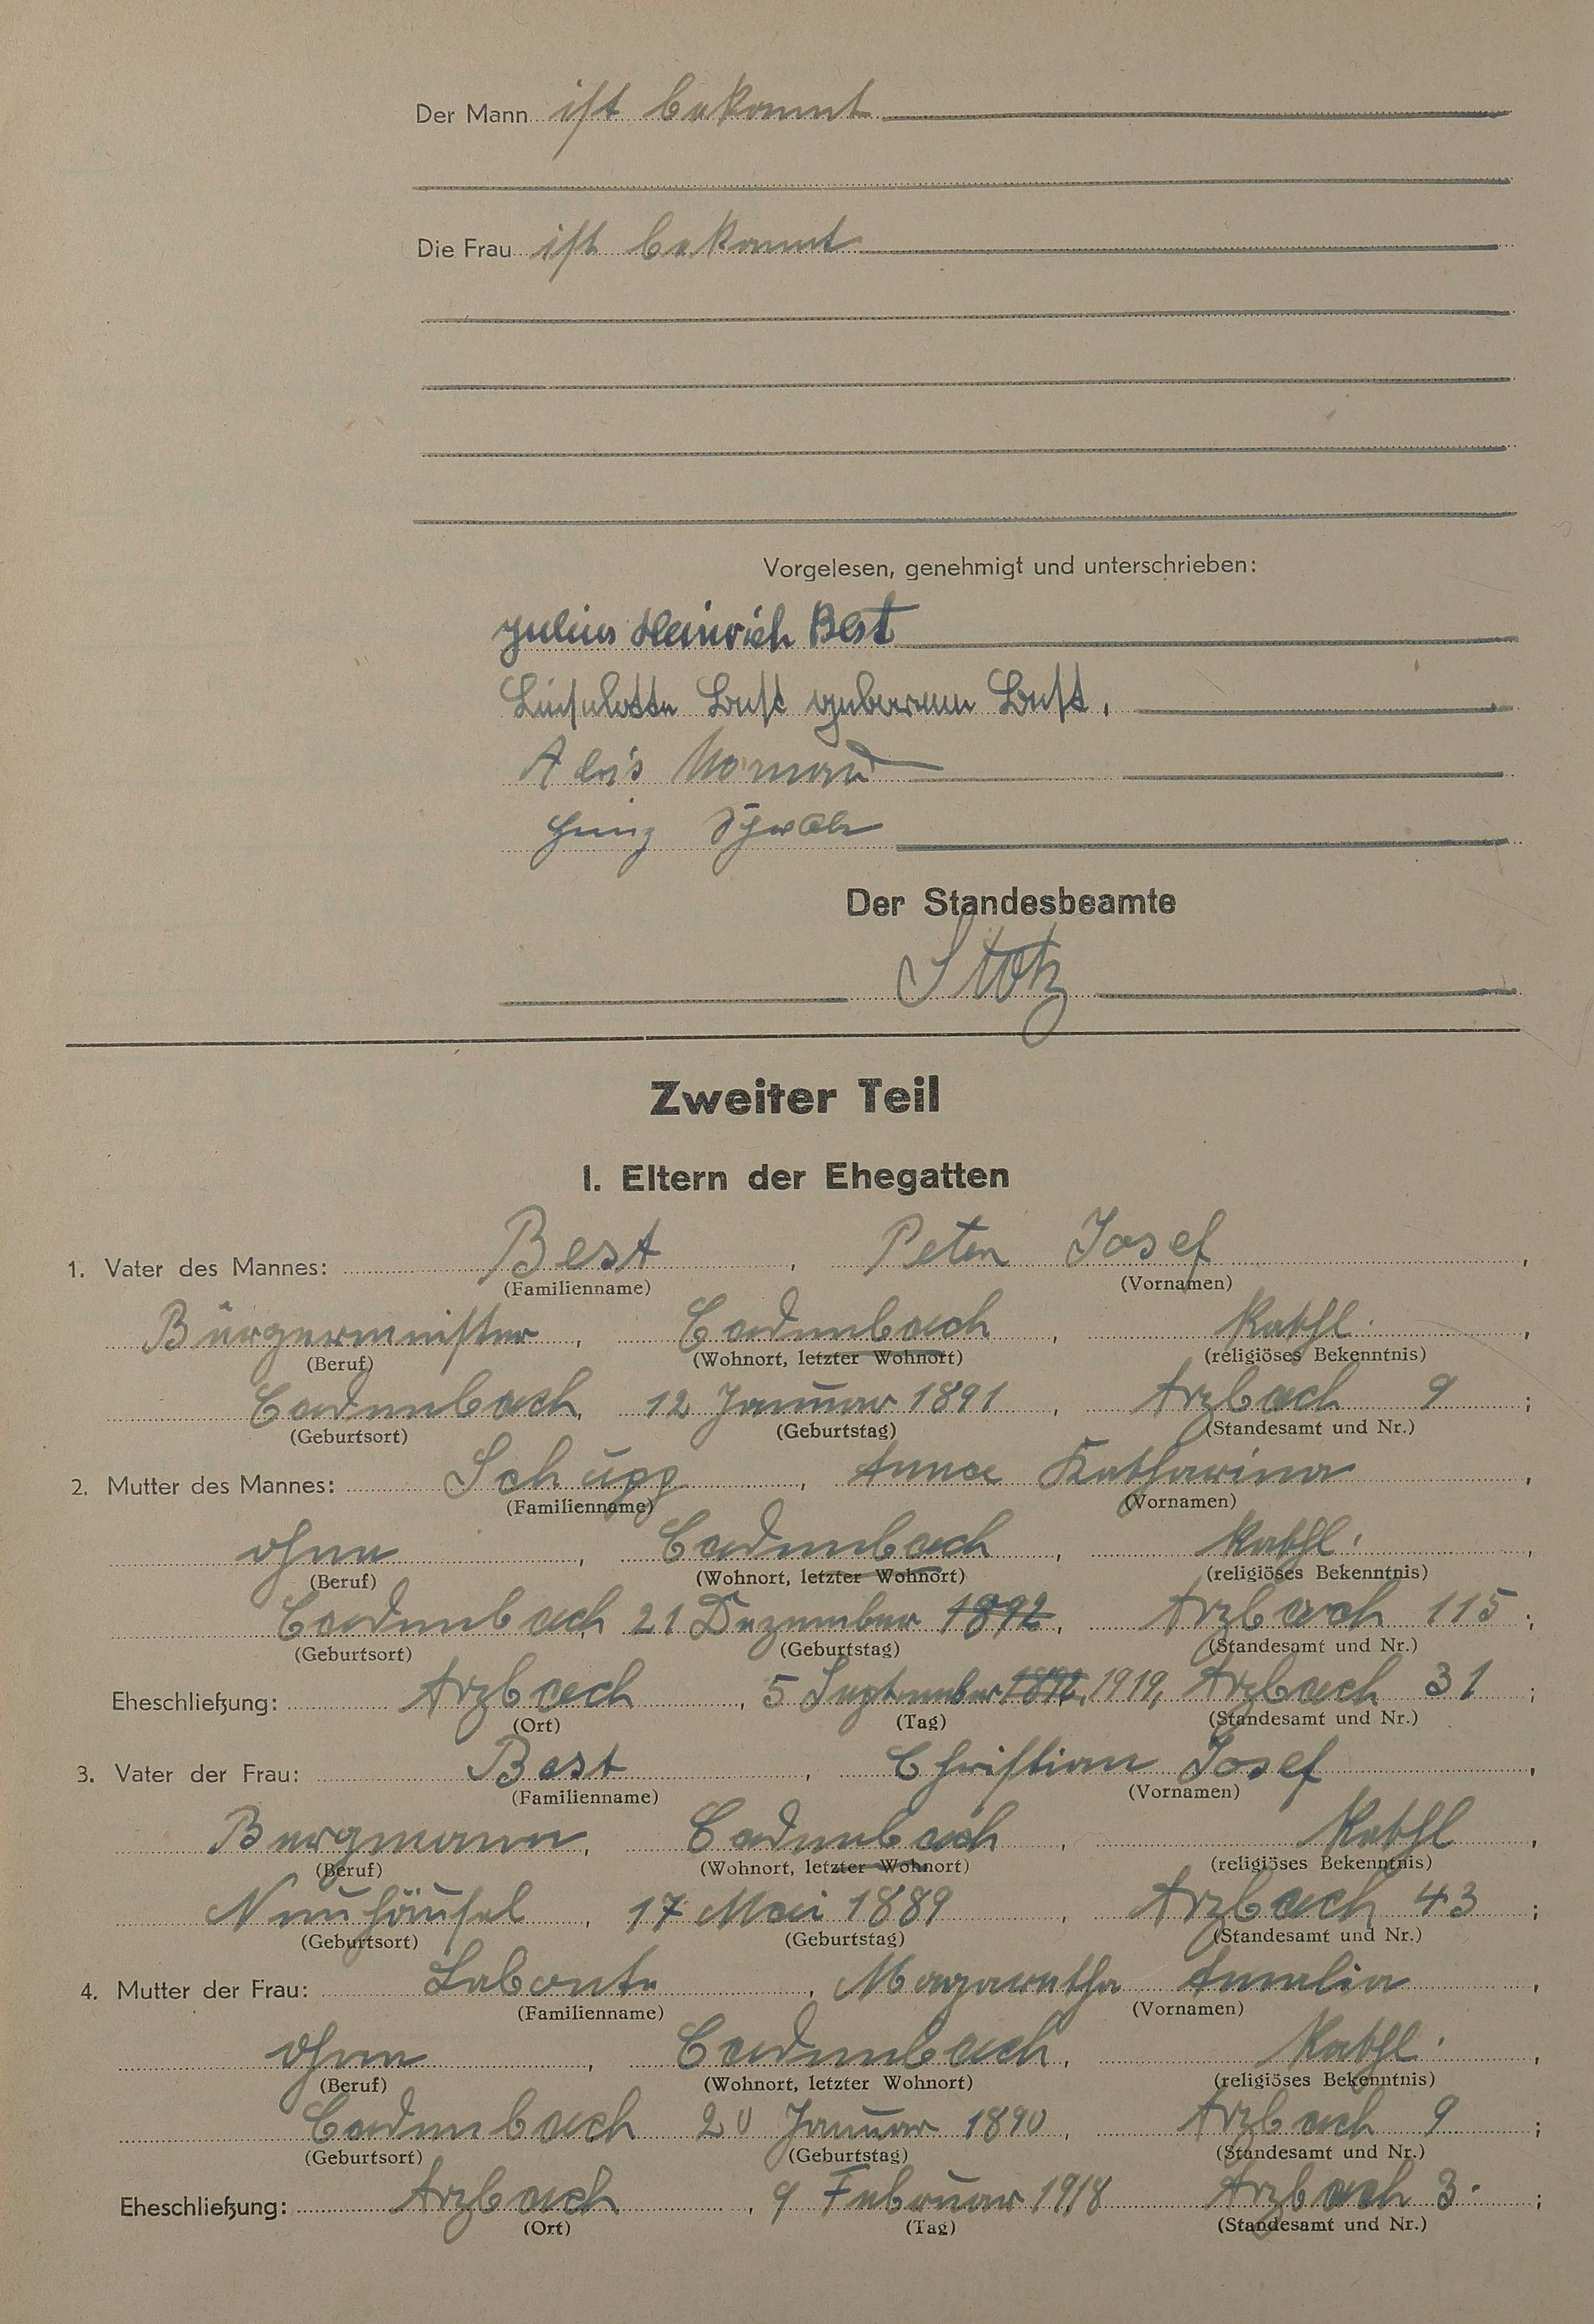 Der Mann ist bekannt
Die Frau ist bekannt
Vorgelesen, genehmigt und unterschrieben:
Julius Heinrich Best
Lieselotte Best geborene Best.
Alois
Der Standesbeamte
Stotz
Zweiter Teil
I. Eltern der Ehegatten
1. Vater des Mannes: Best, Peter Josef,
(Familienname) (Vornamen)
Bürgermeister, Cadenbach, kathl.,
(Beruf) (Wohnort, letzter Wohnort) (religiöses Bekenntnis)
Cadenbach, 12 Januar 1891, Arzbach 9;
(Geburtsort) (Geburtstag) (Standesamt und Nr.)
2. Mutter des Mannes: Schupp, Anna Katharina,
(Familienname) (Vornamen)
ohne, Cadenbach, kathl.,
(Beruf) (Wohnort, letzter Wohnort) (religiöses Bekenntnis)
Cadenbach, 21 Dezember 1892, Arzbach 115;
(Geburtsort) (Geburtstag) (Standesamt und Nr.)
Eheschließung: Arzbach, 5 September 1892, 1919, Arzbach 31;
(Ort) (Tag) (Standesamt und Nr.)
3. Vater der Frau: Best, Christian Josef,
(Familienname) (Vornamen)
Bergmann, Cadenbach, Kathl,
(Beruf) (Wohnort, letzter Wohnort) (religiöses Bekenntnis)
Neuhäusel, 17 Mai 1889, Arzbach 43;
(Geburtsort) (Geburtstag) (Standesamt und Nr.)
4. Mutter der Frau: Labonte, Margaretha Amalia,
(Familienname) (Vornamen)
ohne, Cadenbach, Kathl.,
(Beruf) (Wohnort, letzter Wohnort) (religiöses Bekenntnis)
Cadenbach 20 Januar 1890, Arzbach 9;
(Geburtsort) (Geburtstag) (Standesamt und Nr.)
Eheschließung: Arzbach, 9 Februar 1918 Arzbach 3.;
(Ort) (Tag) (Standesamt und Nr.)